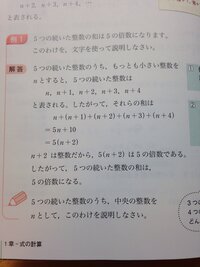 n+2, n+3, n+4, …
と表される。
例1 5つの続いた整数の和は5の倍数になります。
このわけを、文字を使って説明しなさい。
解答 5つの続いた整数のうち、もっとも小さい整数を
nとすると、5つの続いた整数は
n, n+1, n+2, n+3, n+4
と表される。したがって、それらの和は
n+(n+1)+(n+2)+(n+3)+(n+4)
=5n+10
=5(n+2)
n+2は整数だから、5(n+2)は5の倍数である。
したがって、5つの続いた整数の和は、
5の倍数になる。
5つの続いた整数のうち、中央の整数を
nとして、このわけを説明しなさい。
3つ
4つ
1章 式の計算